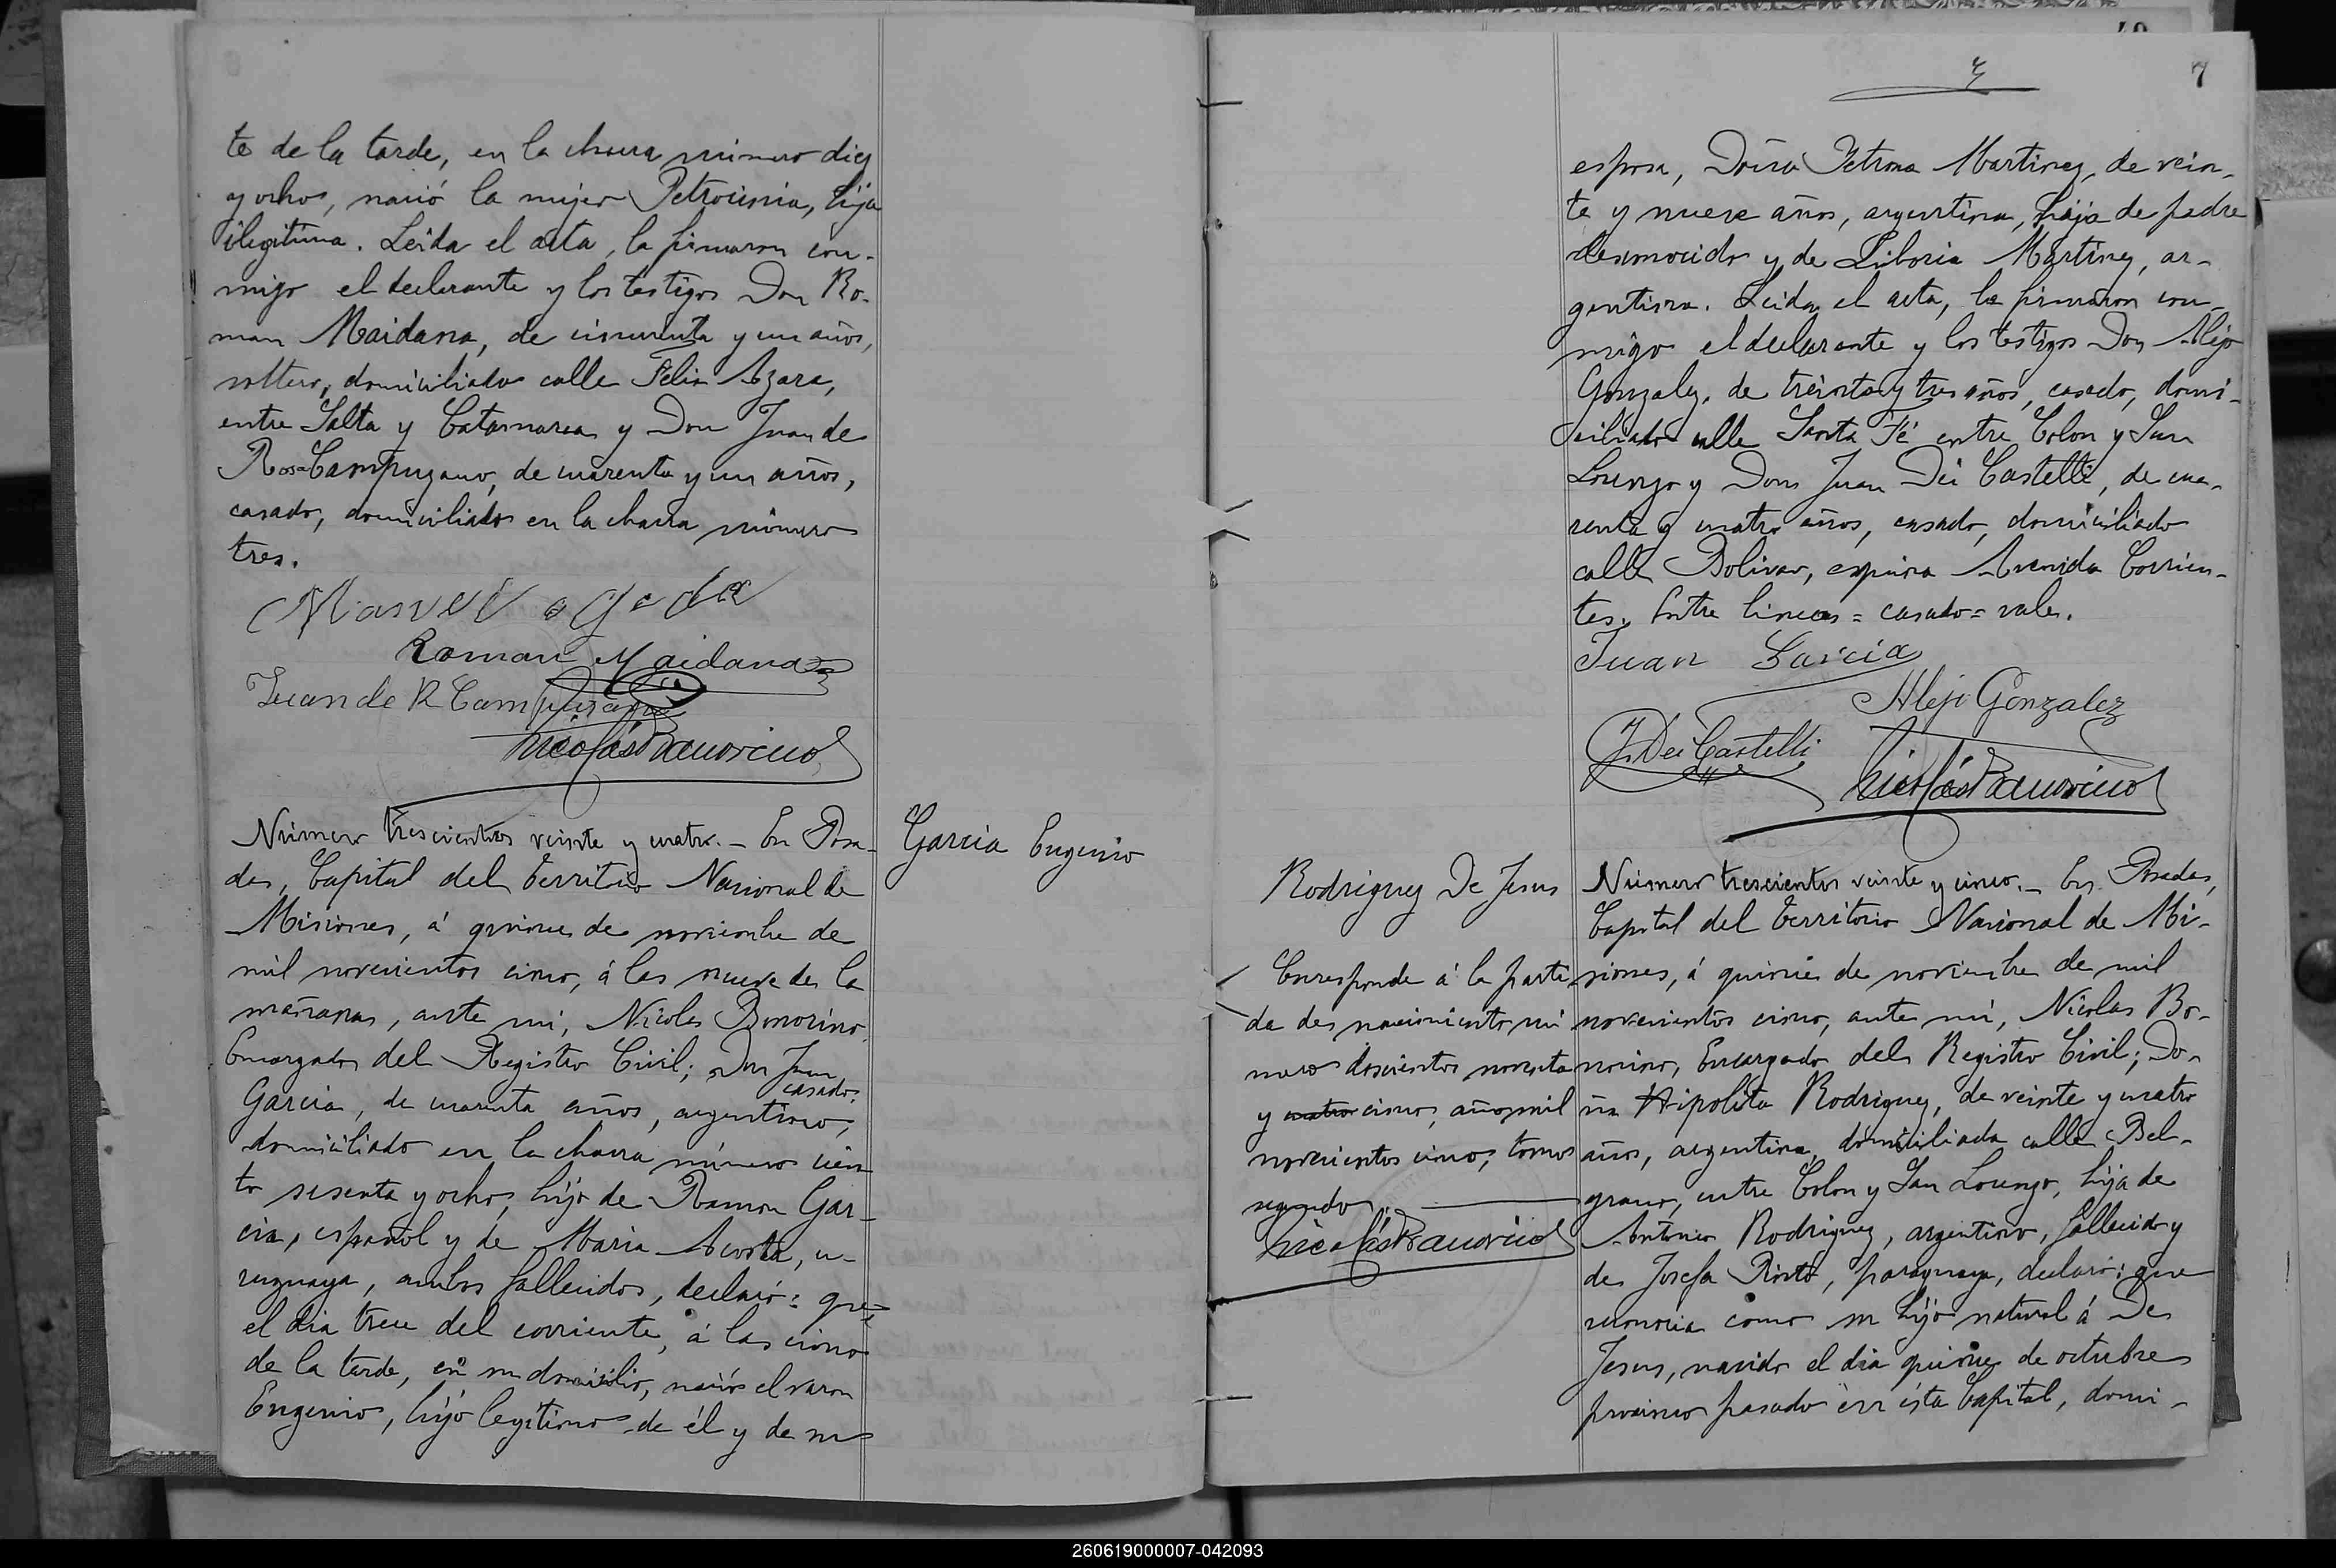 te de la tarde, en la chacra número diez
y ocho, nació la mujer Petronina, hija
ilegitima. Leida el acta, la firmaron con-
migo el declarante y los testigos Don Ro-
man Maidana, de cincuenta y un años,
soltero, domiciliado calle Felix Azara,
entre Salta y Catamarca y Don Juan de
Rosa Campuzano, de cuarenta y un años,
casado, domiciliado en la chacra número
tres.
Manuel
Roman Maidana
Juan de R Campuzano
Nicolás Bonorino
Número trescientos veinte y cuatro. - En Posa-
das, Capital del Territorio Nacional de
Misiones, á quince de noviembre de
mil novecientos cinco, á las nueve de la
mañana, ante mi, Nicolas Bonorino
Encargado del Registro Civil; Don Juan
casado,
Garcia, de cuarenta años, argentino,
domiciliado en la chacra número cien-
to sesenta y ocho, hijo de Ramon Gar-
cia, español y de Maria Acosta, u-
ruguaya, ambos fallecidos, declaró: que
el dia trece del corriente, á las cinco
de la tarde, en su domicilio, nació el varon
Eugenio, hijo legitimo de él y de su
Garcia Eugenio
7
esposa, Doña Petrona Martinez, de vein-
te y nueve años, argentina, hija de padre
desconocido y de Liboria Martinez, ar-
gentina. Leida el acta, la firmaron con-
migo el declarante y los testigos Don Alejo
Gonzalez, de treinta y tres años, casado, domi-
ciliado calle Santa Fé entre Colon y San
Lorenzo y Don Juan Dei Castelli, de cua-
renta y cuatro años, casado, domiciliado
calle Bolivar, esquina Avenida Corrien-
tes. Entre lineas = casado = vale.
Juan Garcia
Alejo Gonzalez
J. Dei Castelli
Nicolás Bonorino
Rodriguez De Jesus
Corresponde á la parti-
da de nacimiento nú-
mero doscientos noventa
y cuatro cinco, año mil
novecientos cinco, tomo
segundo
Nicolás Bonorino
Número trescientos veinte y cinco. - En Posadas,
Capital del Territorio Nacional de Mi-
siones, á quince de noviembre de mil
novecientos cinco, ante mi, Nicolas Bo-
norino, Encargado del Registro Civil; Do-
ña Hipolita Rodriguez, de veinte y cuatro
años, argentina, domiciliada calle Bel-
grano, entre Colon y San Lorenzo, hija de
Antonio Rodriguez, argentino, fallecido y
de Josefa Pinto, paraguaya, declaró: que
reconocia como su hijo natural á De
Jesus, nacido el dia quince de octubre
proximo pasado en ésta Capital, domi-
260619000007-042093